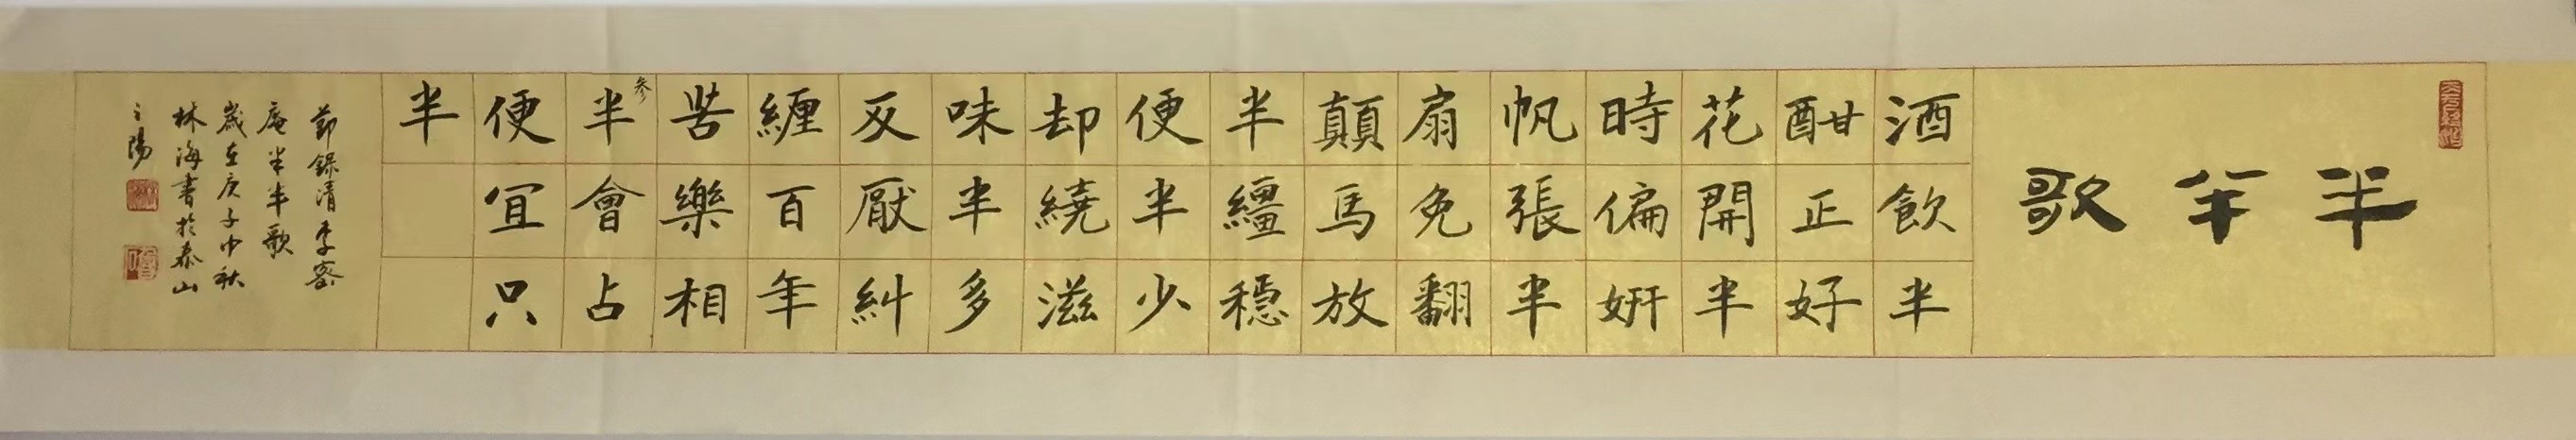 半半歌
酒飲半
酣正好
花開半
時偏妍
帆張半
扇免翻
顛馬放
半繮穩
便半少
却繞滋
味半多
反厭糾
纏百年
苦樂相
半會占
參
便宜只
半
節錄清李密
庵半半歌
歲在庚子中秋
林海書於泰山
之陽